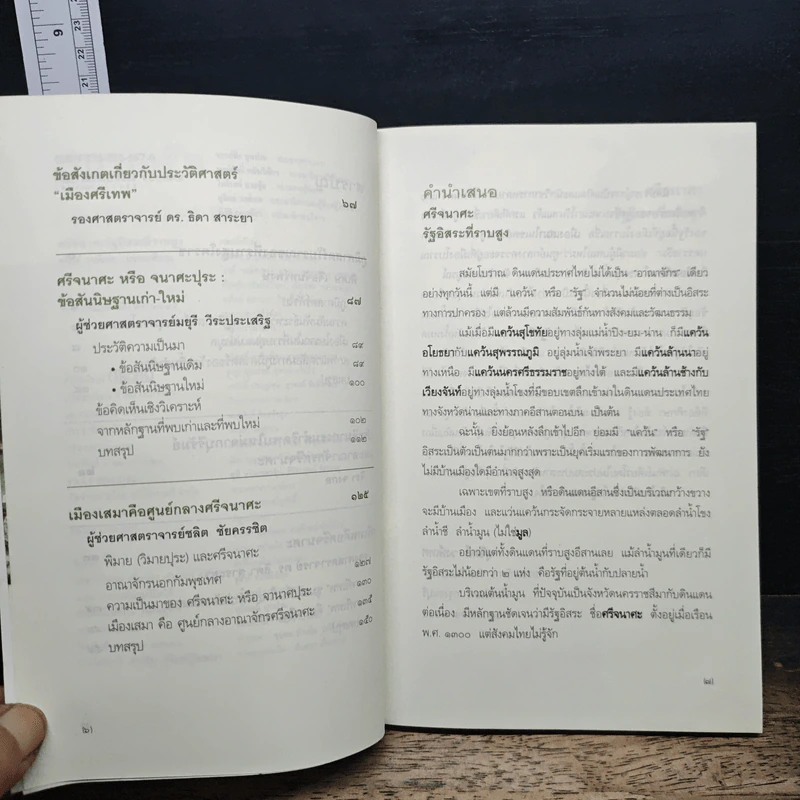 9
23
22
21
ข้อสังเกตเกี่ยวกับประวัติศาสตร์
“เมืองศรีเทพ” ๖๗
รองศาสตราจารย์ ดร. ธิดา สาระยา
ศรีจนาศะ หรือ จนาศะปุระ :
ข้อสันนิษฐานเก่า-ใหม่ ๘๗
ผู้ช่วยศาสตราจารย์มยุรี วีระประเสริฐ
ประวัติความเป็นมา ๘๙
• ข้อสันนิษฐานเดิม ๘๙
• ข้อสันนิษฐานใหม่ ๑๐๐
ข้อคิดเห็นเชิงวิเคราะห์
จากหลักฐานที่พบเก่าและที่พบใหม่ ๑๐๒
บทสรุป ๑๑๒
เมืองเสมาคือศูนย์กลางศรีจนาศะ ๑๒๕
ผู้ช่วยศาสตราจารย์ชลิต ชัยครรชิต
พิมาย (วิมายปุระ) และศรีจนาศะ
อาณาจักรนอกกัมพุชเทศ ๑๒๗
ความเป็นมาของ ศรีจนาศะ หรือ จานาศปุระ ๑๓๐
เมืองเสมา คือ ศูนย์กลางอาณาจักรศรีจนาศะ ๑๓๕
บทสรุป ๑๕๐
(๖)
คำนำเสนอ
ศรีจนาศะ
รัฐอิสระที่ราบสูง
สมัยโบราณ ดินแดนประเทศไทยไม่ได้เป็น “อาณาจักร” เดียว
อย่างทุกวันนี้ แต่มี “แคว้น” หรือ “รัฐ” จำนวนไม่น้อยที่ต่างเป็นอิสระ
ทางการปกครอง แต่ล้วนมีความสัมพันธ์กันทางสังคมและวัฒนธรรม
แม้เมื่อมีแคว้นสุโขทัยอยู่ทางลุ่มแม่น้ำปิง-ยม-น่าน ก็มีแคว้น
อโยธยากับแคว้นสุพรรณภูมิ อยู่ลุ่มน้ำเจ้าพระยา มีแคว้นล้านนาอยู่
ทางเหนือ มีแคว้นนครศรีธรรมราชอยู่ทางใต้ และมีแคว้นล้านช้างกับ
เวียงจันท์อยู่ทางลุ่มน้ำโขงที่มีขอบเขตลึกเข้ามาในดินแดนประเทศไทย
ทางจังหวัดน่านและทางภาคอีสานตอนบน เป็นต้น
ฉะนั้น ยิ่งย้อนหลังลึกเข้าไปอีก ย่อมมี “แคว้น” หรือ “รัฐ”
อิสระเป็นตัวเป็นตนมากกว่าเพราะเป็นยุคเริ่มแรกของการพัฒนาการ ยัง
ไม่มีบ้านเมืองใดมีอำนาจสูงสุด
เฉพาะเขตที่ราบสูง หรือดินแดนอีสานซึ่งเป็นบริเวณกว้างขวาง
จะมีบ้านเมือง และแว่นแคว้นกระจัดกระจายหลายแห่งตลอดลำน้ำโขง
ลำน้ำชี ลำน้ำมูน (ไม่ใช่มูล)
อย่าว่าแต่ทั้งดินแดนที่ราบสูงอีสานเลย แม้ลำน้ำมูนที่เดียวก็มี
รัฐอิสระไม่น้อยกว่า ๒ แห่ง คือรัฐที่อยู่ต้นน้ำกับปลายน้ำ
บริเวณต้นน้ำมูน ที่ปัจจุบันเป็นจังหวัดนครราชสีมากับดินแดน
ต่อเนื่อง มีหลักฐานชัดเจนว่ามีรัฐอิสระ ชื่อศรีจนาศะ ตั้งอยู่เมื่อเรือน
พ.ศ. ๑๓๐๐ แต่สังคมไทยไม่รู้จัก